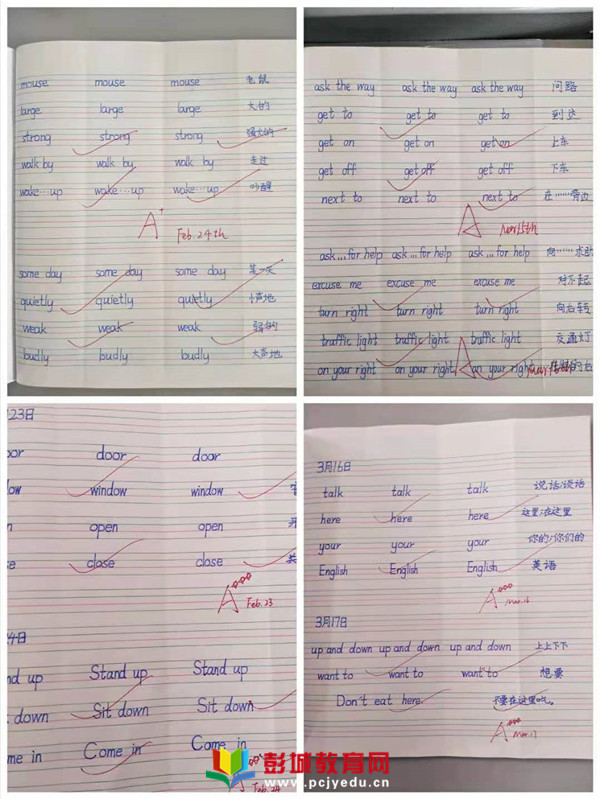 mouse mouse mouse 老鼠
large large large 大的
strong strong strong 强壮的
walk by walk by walk by 走过
wake…up wake…up wake…up 叫醒
A+ Feb.24th
some day some day some day 某一天
quietly quietly quietly 小声地
weak weak weak 弱的
budly budly budly 大声地
ask the way ask the way ask the way 问路
get to get to get to 到达
get on get on get on 上车
get off get off get off 下车
next to next to next to 在……旁边
A Mar.15th
ask...for help ask...for help ask...for help 向……求助
excuse me excuse me excuse me 对不起
turn right turn right turn right 向右转
traffic light traffic light traffic light 交通灯
on your right on your right on your right
A
23日
oor door door
dow window window
n open open 开
e close close 关
A Feb.23
4日
nd up Stand up Stand up
t down Sit down Sit down
me in Come in Come in
A Feb.24
3月16日
talk talk talk 说话/谈话
here here here 这里/在这里
your your your 你的/你们的
English English English 英语
A Mar.16
3月17日
up and down up and down up and down 上上下下
want to want to want to 想要
Don't eat here. 不要在这里吃。
A Mar.17
彭城教育网
www.pcjyedu.cn